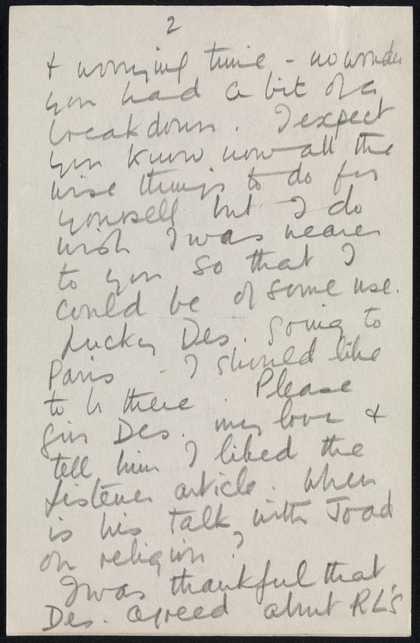 2
& worrying time - no wonder
you had a bit of a
breakdown. I expect
you know now all the
wise things to do for
yourself but I do
wish I was nearer
to you so that I
could be of some use.
Lucky Des. going to
Paris - I should like
to be there. Please
give Des. my love &
tell him I liked the
Listener article. When
is his talk with Joad
on religion?
I was thankful that
Des. agreed about RL's